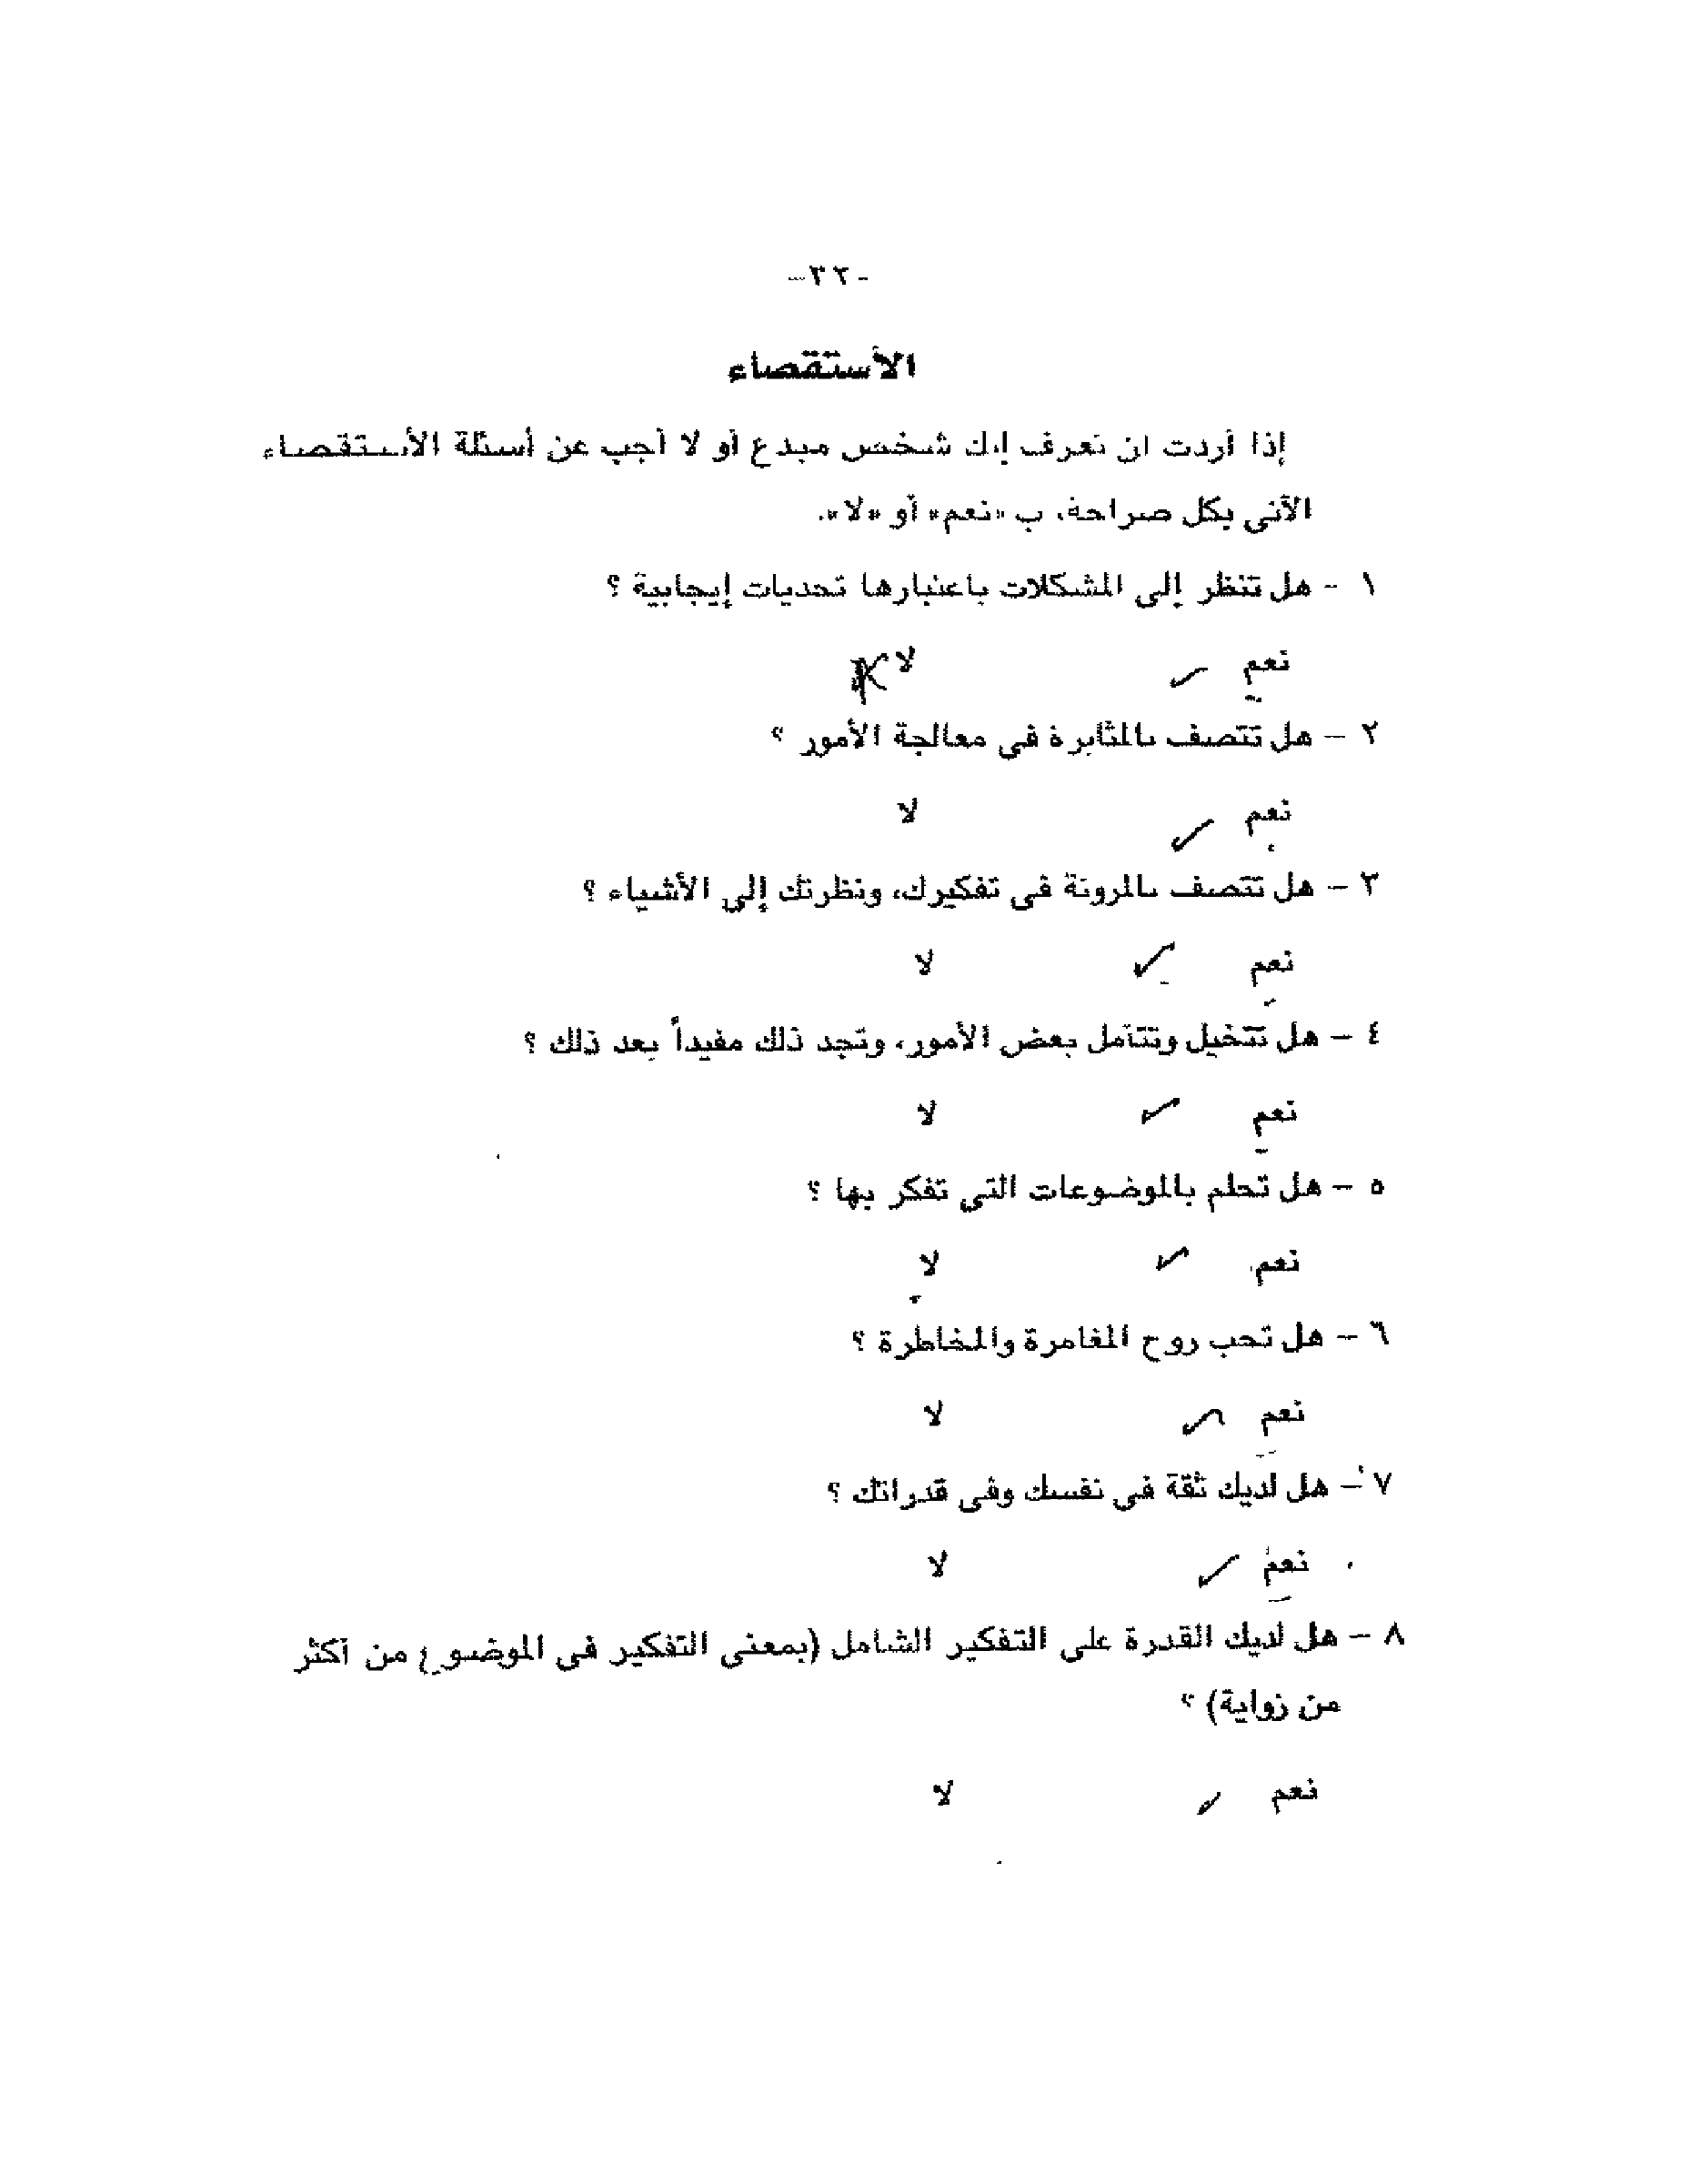 -٣٢-
الأستقصاء
إذا أردت ان تعرف إنك شخص مبدع أو لا أجب عن أسئلة الأستقصاء
الآتى بكل صراحة، ب «نعم» أو «لا».
١ - هل تنظر إلى المشكلات باعتبارها تحديات إيجابية ؟
نعم ✓ لا
٢ - هل تتصف بالمثابرة فى معالجة الأمور ؟
نعم ✓ لا
٣ - هل تتصف بالمرونة فى تفكيرك، ونظرتك إلى الأشياء ؟
نعم ✓ لا
٤ - هل تتخيل وتتأمل بعض الأمور، وتجد ذلك مفيداً بعد ذلك ؟
نعم ✓ لا
٥ - هل تحلم بالموضوعات التى تفكر بها ؟
نعم ✓ لا
٦ - هل تحب روح المغامرة والمخاطرة ؟
نعم ✓ لا
٧ - هل لديك ثقة فى نفسك وفى قدراتك ؟
نعم ✓ لا
٨ - هل لديك القدرة على التفكير الشامل (بمعنى التفكير فى الموضوع من أكثر
من زواية) ؟
نعم ✓ لا